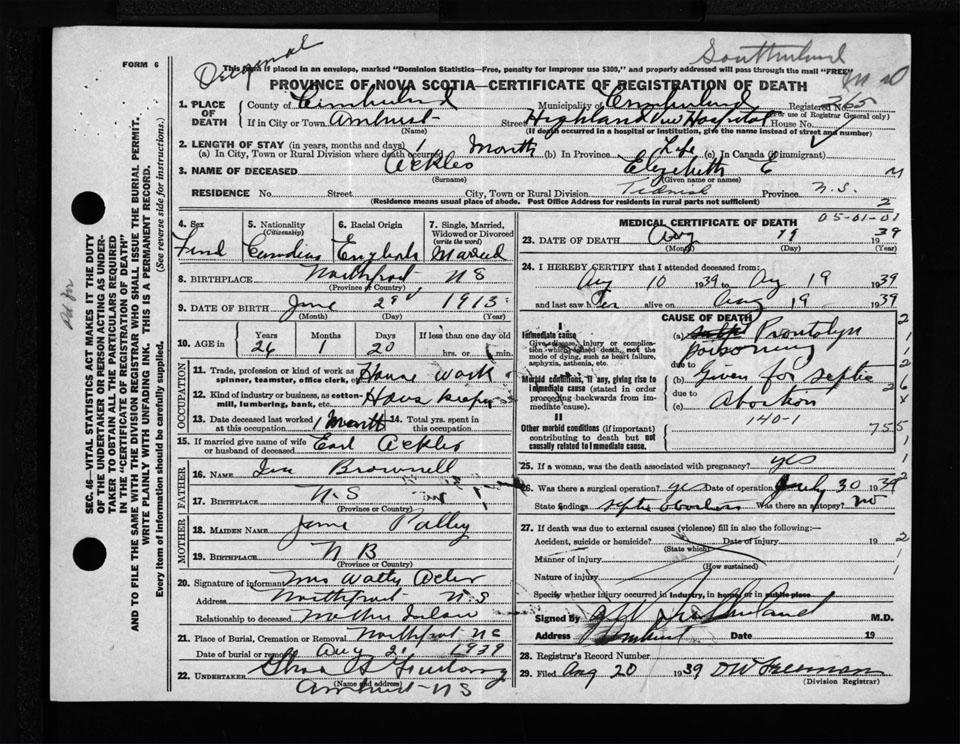 FORM 6
Original
Southerland
This form if placed in an envelope, marked "Dominion Statistics—Free, penalty for improper use $300," and properly addressed will pass through the mail "FREE"
PROVINCE OF NOVA SCOTIA—CERTIFICATE OF REGISTRATION OF DEATH
1. PLACE OF DEATH
County of Cumberland Municipality of Cumberland Registered No. 365
(For use of Registrar General only)
If in City or Town Amherst Street Highland View Hospital House No.
(Name) (If death occurred in a hospital or institution, give the name instead of street and number)
2. LENGTH OF STAY (in years, months and days)
(a) In City, Town or Rural Division where death occurred 1 Month (b) In Province Life (c) In Canada (if immigrant)
3. NAME OF DECEASED Ackles Elizabeth E
(Surname) (Given name or names)
RESIDENCE No. Street City, Town or Rural Division Tidnish Province N.S.
(Residence means usual place of abode. Post Office Address for residents in rural parts not sufficient)
M
2
4. Sex
5. Nationality (Citizenship)
6. Racial Origin
7. Single, Married, Widowed or Divorced (write the word)
Canadian English Married
8. BIRTHPLACE Northport NS
(Province or Country)
9. DATE OF BIRTH June 29 1913
(Month) (Day) (Year)
10. AGE in
Years Months Days If less than one day old
26 1 20 hrs. or min.
OCCUPATION
11. Trade, profession or kind of work as spinner, teamster, office clerk, etc. House work
12. Kind of industry or business, as cotton-mill, lumbering, bank, etc. House keeper
13. Date deceased last worked at this occupation 1 Month 14. Total yrs. spent in this occupation
15. If married give name of wife or husband of deceased Earl Ackles
FATHER
16. Name Brownell
17. Birthplace N.S
(Province or Country)
MOTHER
18. Maiden Name Jane
19. Birthplace N B
(Province or Country)
20. Signature of informant Mrs
Address Northport N.S
Relationship to deceased Mother Inlaw
21. Place of Burial, Cremation or Removal Northport NS
Date of burial or removal Aug 21 1939
22. UNDERTAKER
(Name and address)
Amherst NS
MEDICAL CERTIFICATE OF DEATH
05-01-01
23. DATE OF DEATH Aug 19 1939
(Month) (Day)
24. I HEREBY CERTIFY that I attended deceased from:
Aug 10 1939 to Aug 19 1939
and last saw her alive on Aug 19 1939
CAUSE OF DEATH
Immediate cause
Give disease, injury or complication which caused death, not the mode of dying, such as heart failure, asphyxia, asthenia, etc.
(a) Prontolyn poisoning
due to
Morbid conditions, if any, giving rise to immediate cause (stated in order proceeding backwards from immediate cause).
(b) Given for septic
due to
(c) Abortion
II
140-1
Other morbid conditions (if important) contributing to death but not causally related to immediate cause.
755
25. If a woman, was the death associated with pregnancy? yes
26. Was there a surgical operation? yes Date of operation July 30 1939
State findings septic abortion Was there an autopsy? no
27. If death was due to external causes (violence) fill in also the following:—
Accident, suicide or homicide? Date of injury 19
(State which)
Manner of injury
(How sustained)
Nature of injury
Specify whether injury occurred in industry, in home, or in public place
Signed by M.D.
Address Amherst Date 19
28. Registrar's Record Number
29. Filed Aug 20 1939 DW Freeman
(Division Registrar)
SEC. 46—VITAL STATISTICS ACT MAKES IT THE DUTY OF THE UNDERTAKER OR PERSON ACTING AS UNDERTAKER TO OBTAIN ALL THE PARTICULARS REQUIRED IN THE "CERTIFICATE OF REGISTRATION OF DEATH" AND TO FILE THE SAME WITH THE DIVISION REGISTRAR WHO SHALL ISSUE THE BURIAL PERMIT.
WRITE PLAINLY WITH UNFADING INK. THIS IS A PERMANENT RECORD.
Every item of information should be carefully supplied. (See reverse side for instructions.)